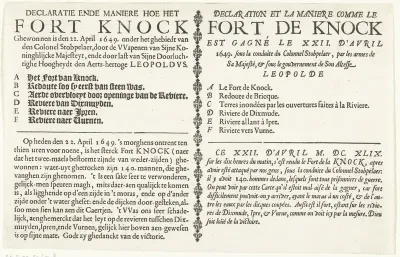 DECLARATIE ENDE MANIERE HOE HET
FORT KNOCK
Ghewonnen is den 22. April 1649. onder het ghebiedt van
den Colonel Stobpelaer, door de VVapenen van Sijne Ko-
ninghlijcke Majesteyt, ende door last van Sijne Doorluch-
tighe Hoogheydt den Aerts-hertoge LEOPOLDVS.
A Het Fort van Knock.
B Redoute soo sy eerst van steen was.
C Aerde overvloeyt door openinge van de Reviere.
D Reviere van Dixmuyden.
E Reviere naer Jpren.
F Reviere naer Vuernen.
Op heden den 22. April 1649. 's morghens ontrent ten
thien uren voor noene, is het sterck Fort KNOCK (naer
dat het twee-maels bestormt zijnde van weder-zijden) ghe-
wonnen: waer-uyt ghetrocken zijn 140. mannen, die ghe-
vanghen zijn ghenomen. 't Is een sake seer te verwonderen,
gelijck-men speuren magh, mits daer-aen qualijck te komen
is, als ligghende op d'een zijde in 't moras, ende op d'ander
zijde onder 't water ghest: ende de dijcken door-gesteken, al-
soo men sien kan aen dit Caertjen. 't VVas ons seer schade-
lijck, aenghemerckt dat het ley op de revieren tusschen Dix-
muyden, Ipren, ende Vurnen, gelijck hier boven aen-gewesen
is op sijne mate. Godt zy ghedanckt van de victorie.
DECLARATION ET LA MANIERE COMME LE
FORT DE KNOCK
EST GAGNÉ LE XXII. D'AVRIL
1649. sous la conduite du Colonel Stobpelaer, par les armes de
Sa Majesté, & sous le gouvernement de Son Altesse
LEOPOLDE
A Le Fort de Knock.
B Redoute de Bricque.
C Terres inondées par les ouvertures faites à la Riviere.
D Riviere de Dixmude.
E Riviere allant à Ipre.
F Riviere vers Vurne.
CE XXII. D'AVRIL M. DC. XLIX.
sur les dix heures du matin, s'est rendu le Fort de la KNOCK, apres
avoir esté attaqué par nos gens, sous la conduite du Colonel Stobpelaer:
il y avoit 140. hommes dedans, lesquels sont tous prisonniers de guerre.
On peut voir par cette Carte qu'il estoit mal aisé de la gagner, car fort
difficilement pouvoit-on y arriver, ayant le marais à un costé, & de l'au-
tre les eaux par les dicques coupées. Aussi est-il fort, estant sur les rivie-
res de Dixmude, Ipre, & Vurne, comme on voit icy par sa mesure. Dieu
soit loüé de la victoire.